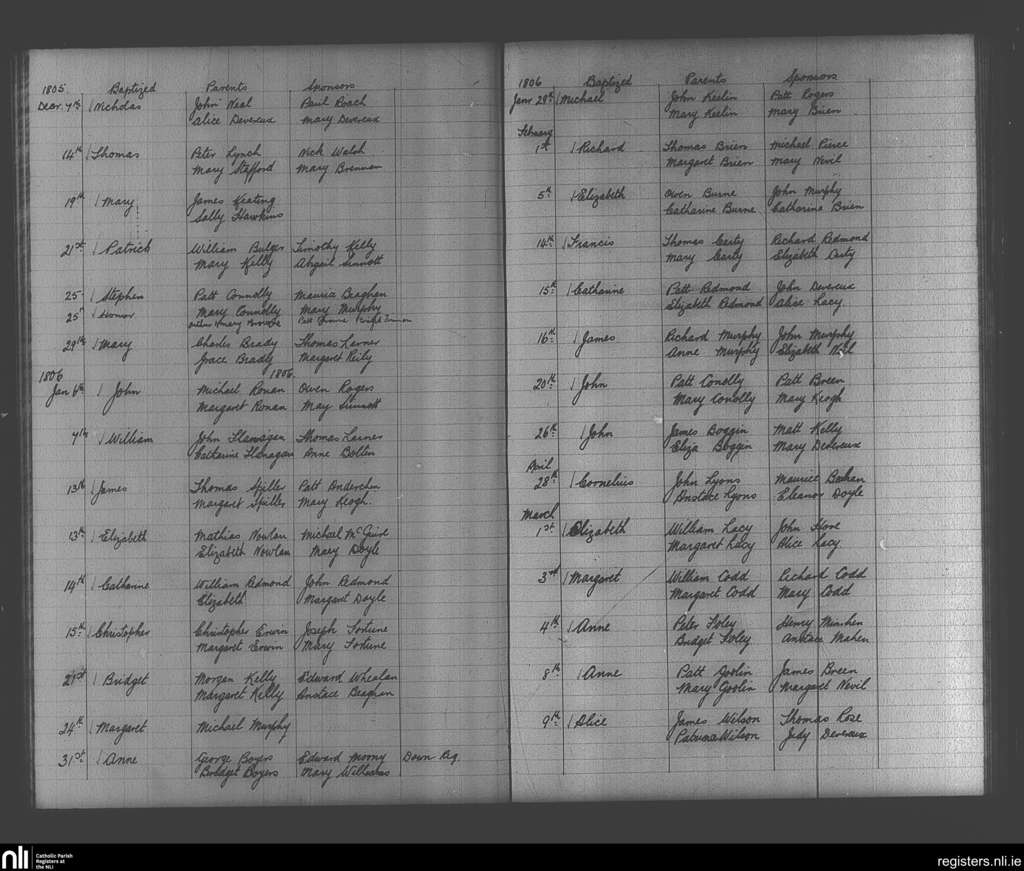 1805 Baptized Parents Sponsors
Decr 7th Nicholas John Neal Paul Roach
Alice Devereux Mary Devereux
14th Thomas Peter Lynch Nick Walsh
Mary Stafford Mary Brennan
19th Mary James Keating
Sally Hawkins
21st Patrick William Bulger Timothy Kelly
Mary Kelly Abigail Sinnott
25 Stephen Patt Connolly Maurice Beaghan
Mary Connolly Mary Murphy
25 Honor Mary
29th Mary Charles Brady Thomas Larner
Grace Brady Margaret Reily
1806 1806
Jan 6th John Michael Ronan Owen Rogers
Margaret Ronan May Sinnott
7th William John Flanagan Thomas Larnes
Catharine Flanagan Anne Bolten
13th James Thomas Spiller Patt
Margaret Spiller Mary Keogh.
13th Elizabeth Mathias Nowlan Michael McGuire
Elizabeth Nowlan Mary Doyle
14th Catharine William Redmond John Redmond
Elizabeth Margaret Doyle
15th Christopher Christopher Erwin Joseph Fortune
Margaret Erwin Mary Fortune
21st Bridget Morgan Kelly Edward Whealan
Margaret Kelly Anstace Beaghan
24th Margaret Michael Murphy
31st Anne George Boyers Edward Moony Down Reg.
Bridget Boyers Mary Williams
1806 Baptized Parents Sponsors
Janr 28th Michael John Keelin Patt Rogers
Mary Keelin Mary Brien
February
1st Richard Thomas Brien Michael Pierce
Margaret Brien Mary Nevil
5th Elizabeth Owen Burne John Murphy
Catharine Burne Catharine Brien
14th Francis Thomas Carty Richard Redmond
Mary Carty Elizabeth Carty
15th Catharine Patt Redmond John Devereux
Elizabeth Redmond Alice Lacy
16th James Richard Murphy John Murphy
Anne Murphy Elizabeth Neil
20th John Patt Conolly Patt Breen
Mary Conolly Mary Keogh
26th John James Boggin Matt Kelly
Eliza Boggin Mary Devereux
April
28th Cornelius John Lyons Maurice
Anstace Lyons Eleanor Doyle
March
1st Elizabeth William Lacy John
Margaret Lacy Alice Lacy
3rd Margaret William Codd Richard Codd
Margaret Codd Mary Codd
4th Anne Peter Foley Henry
Bridget Foley Anstace Mahen
8th Anne Patt Goolin James Breen
Mary Goolin Margaret Nevil
9th Alice James Wilson Thomas Rose
Wilson Judy Devereux
nli Catholic Parish
Registers at
the NLI
registers.nli.ie